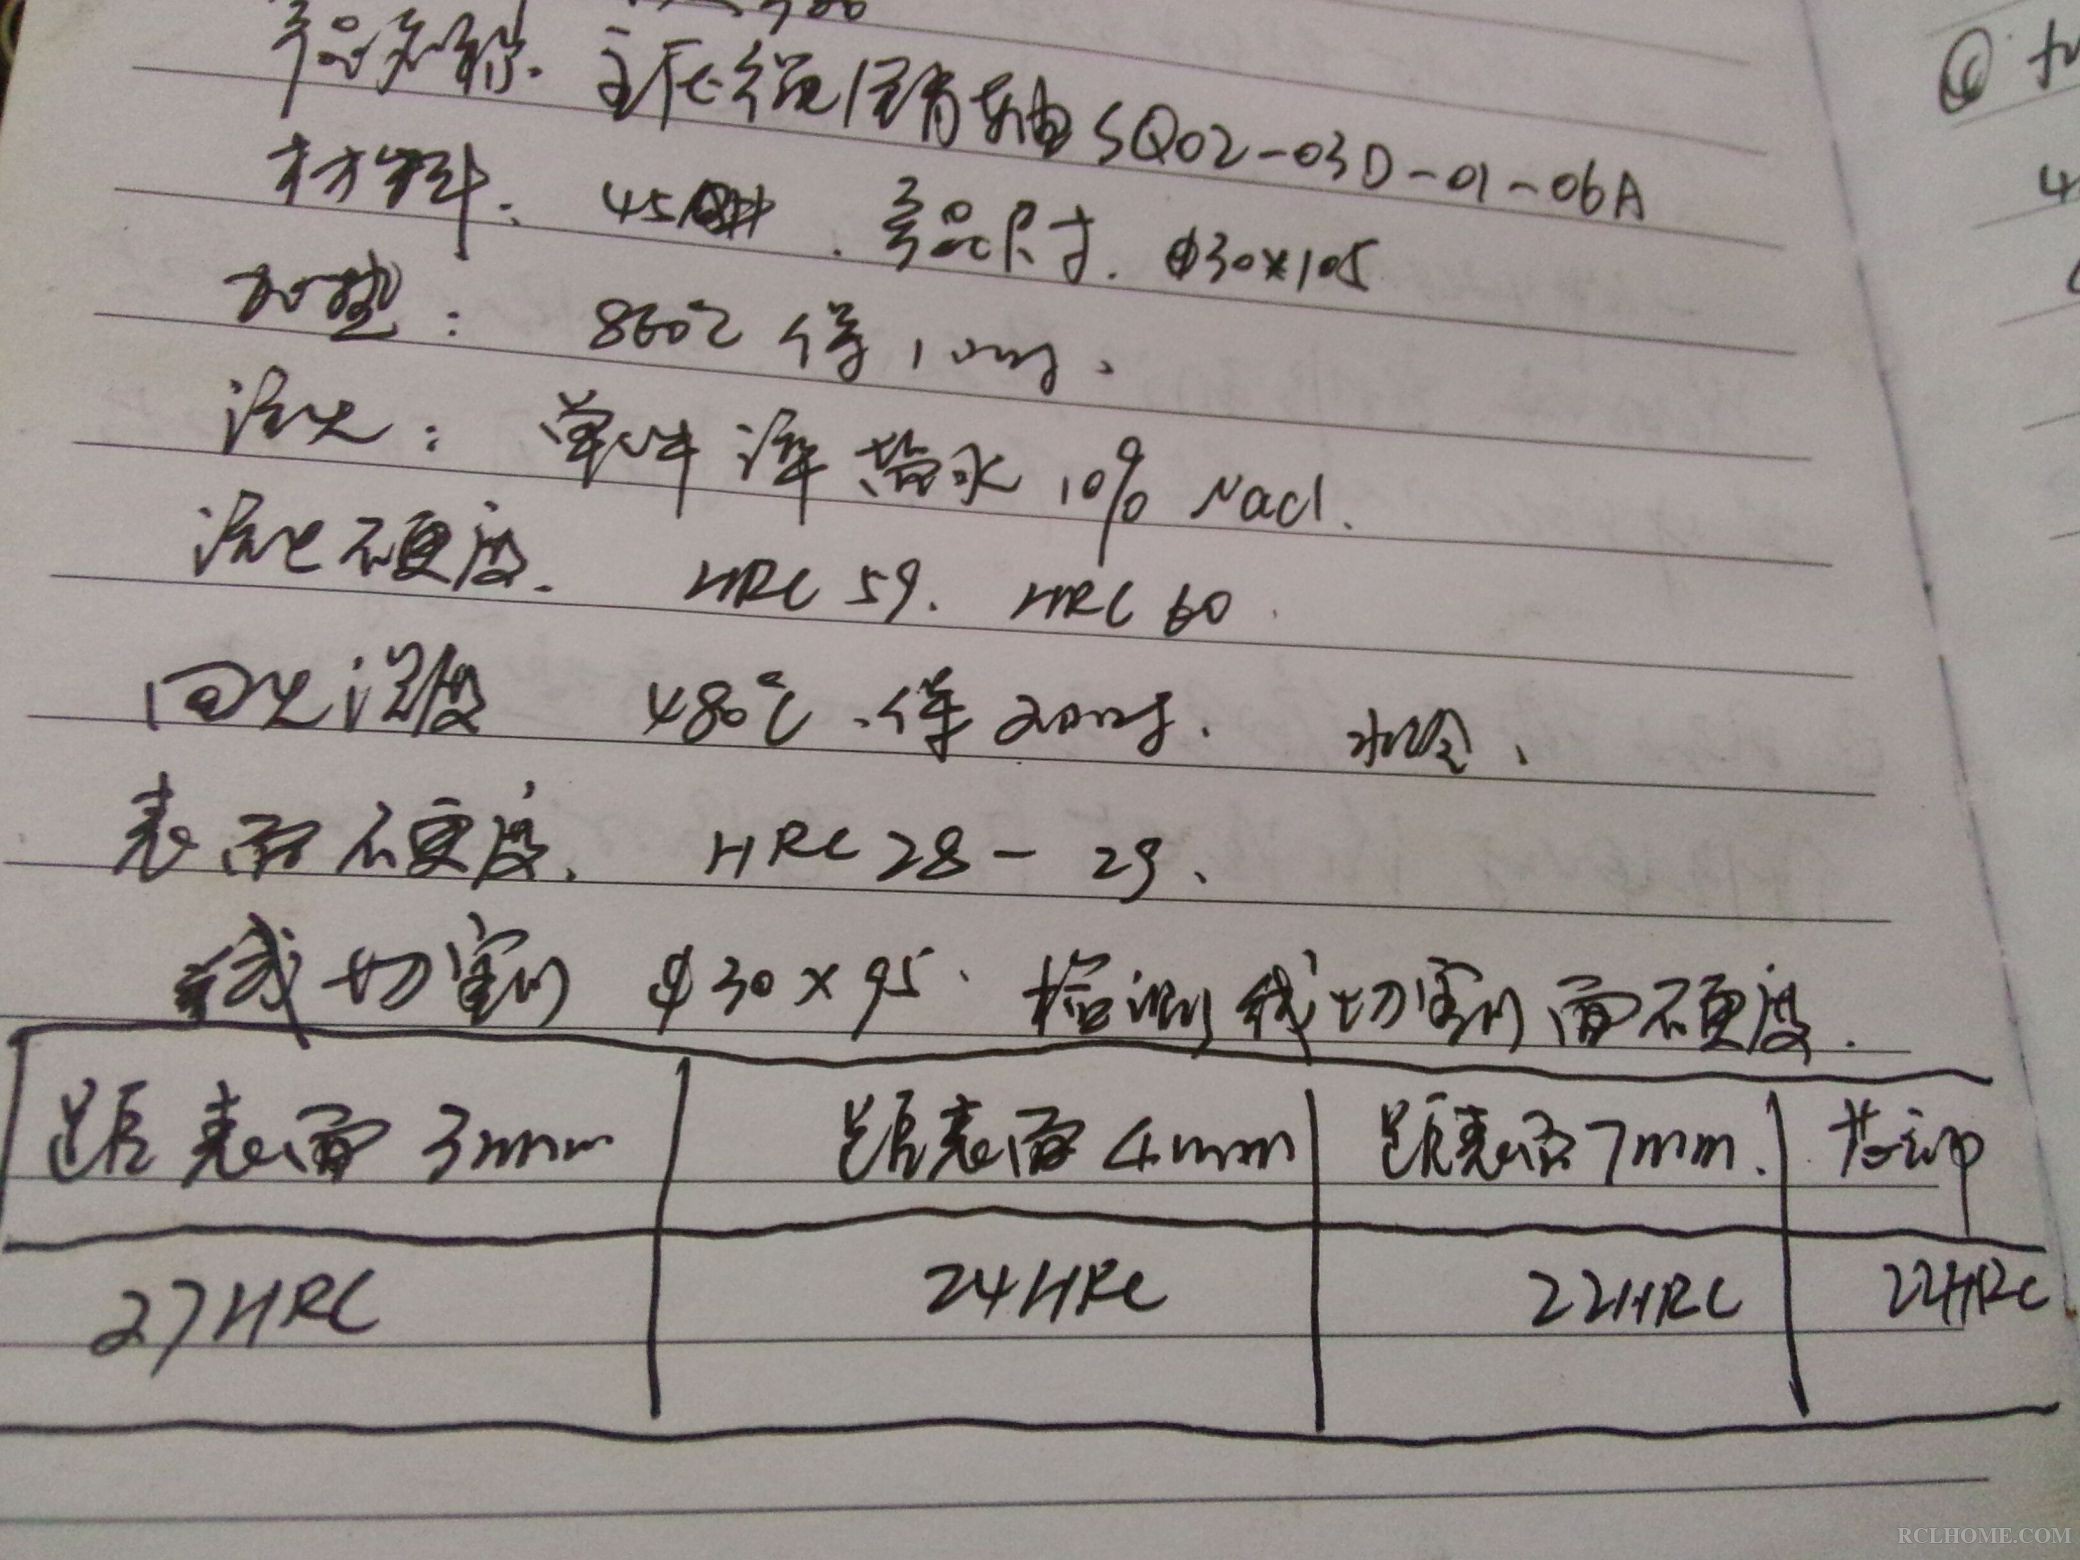 零品名称. 主压缩 销轴 SQ02-03D-01-06A
材料: 45# . 零品尺寸. φ30*105
加热: 860℃ 保 10min.
淬火: 单件淬盐水 10% Nacl.
淬火硬度. HRC 59. HRC 60
回火温度 480℃. 保 20min. 水冷.
表面硬度. HRC 28 - 29.
线切割 φ30×95. 检测线切割面硬度.
距表面 3mm 距表面 4mm 距表面 7mm. 芯部
27HRC 24HRC 22HRC 22HRC
RCLHOME.COM